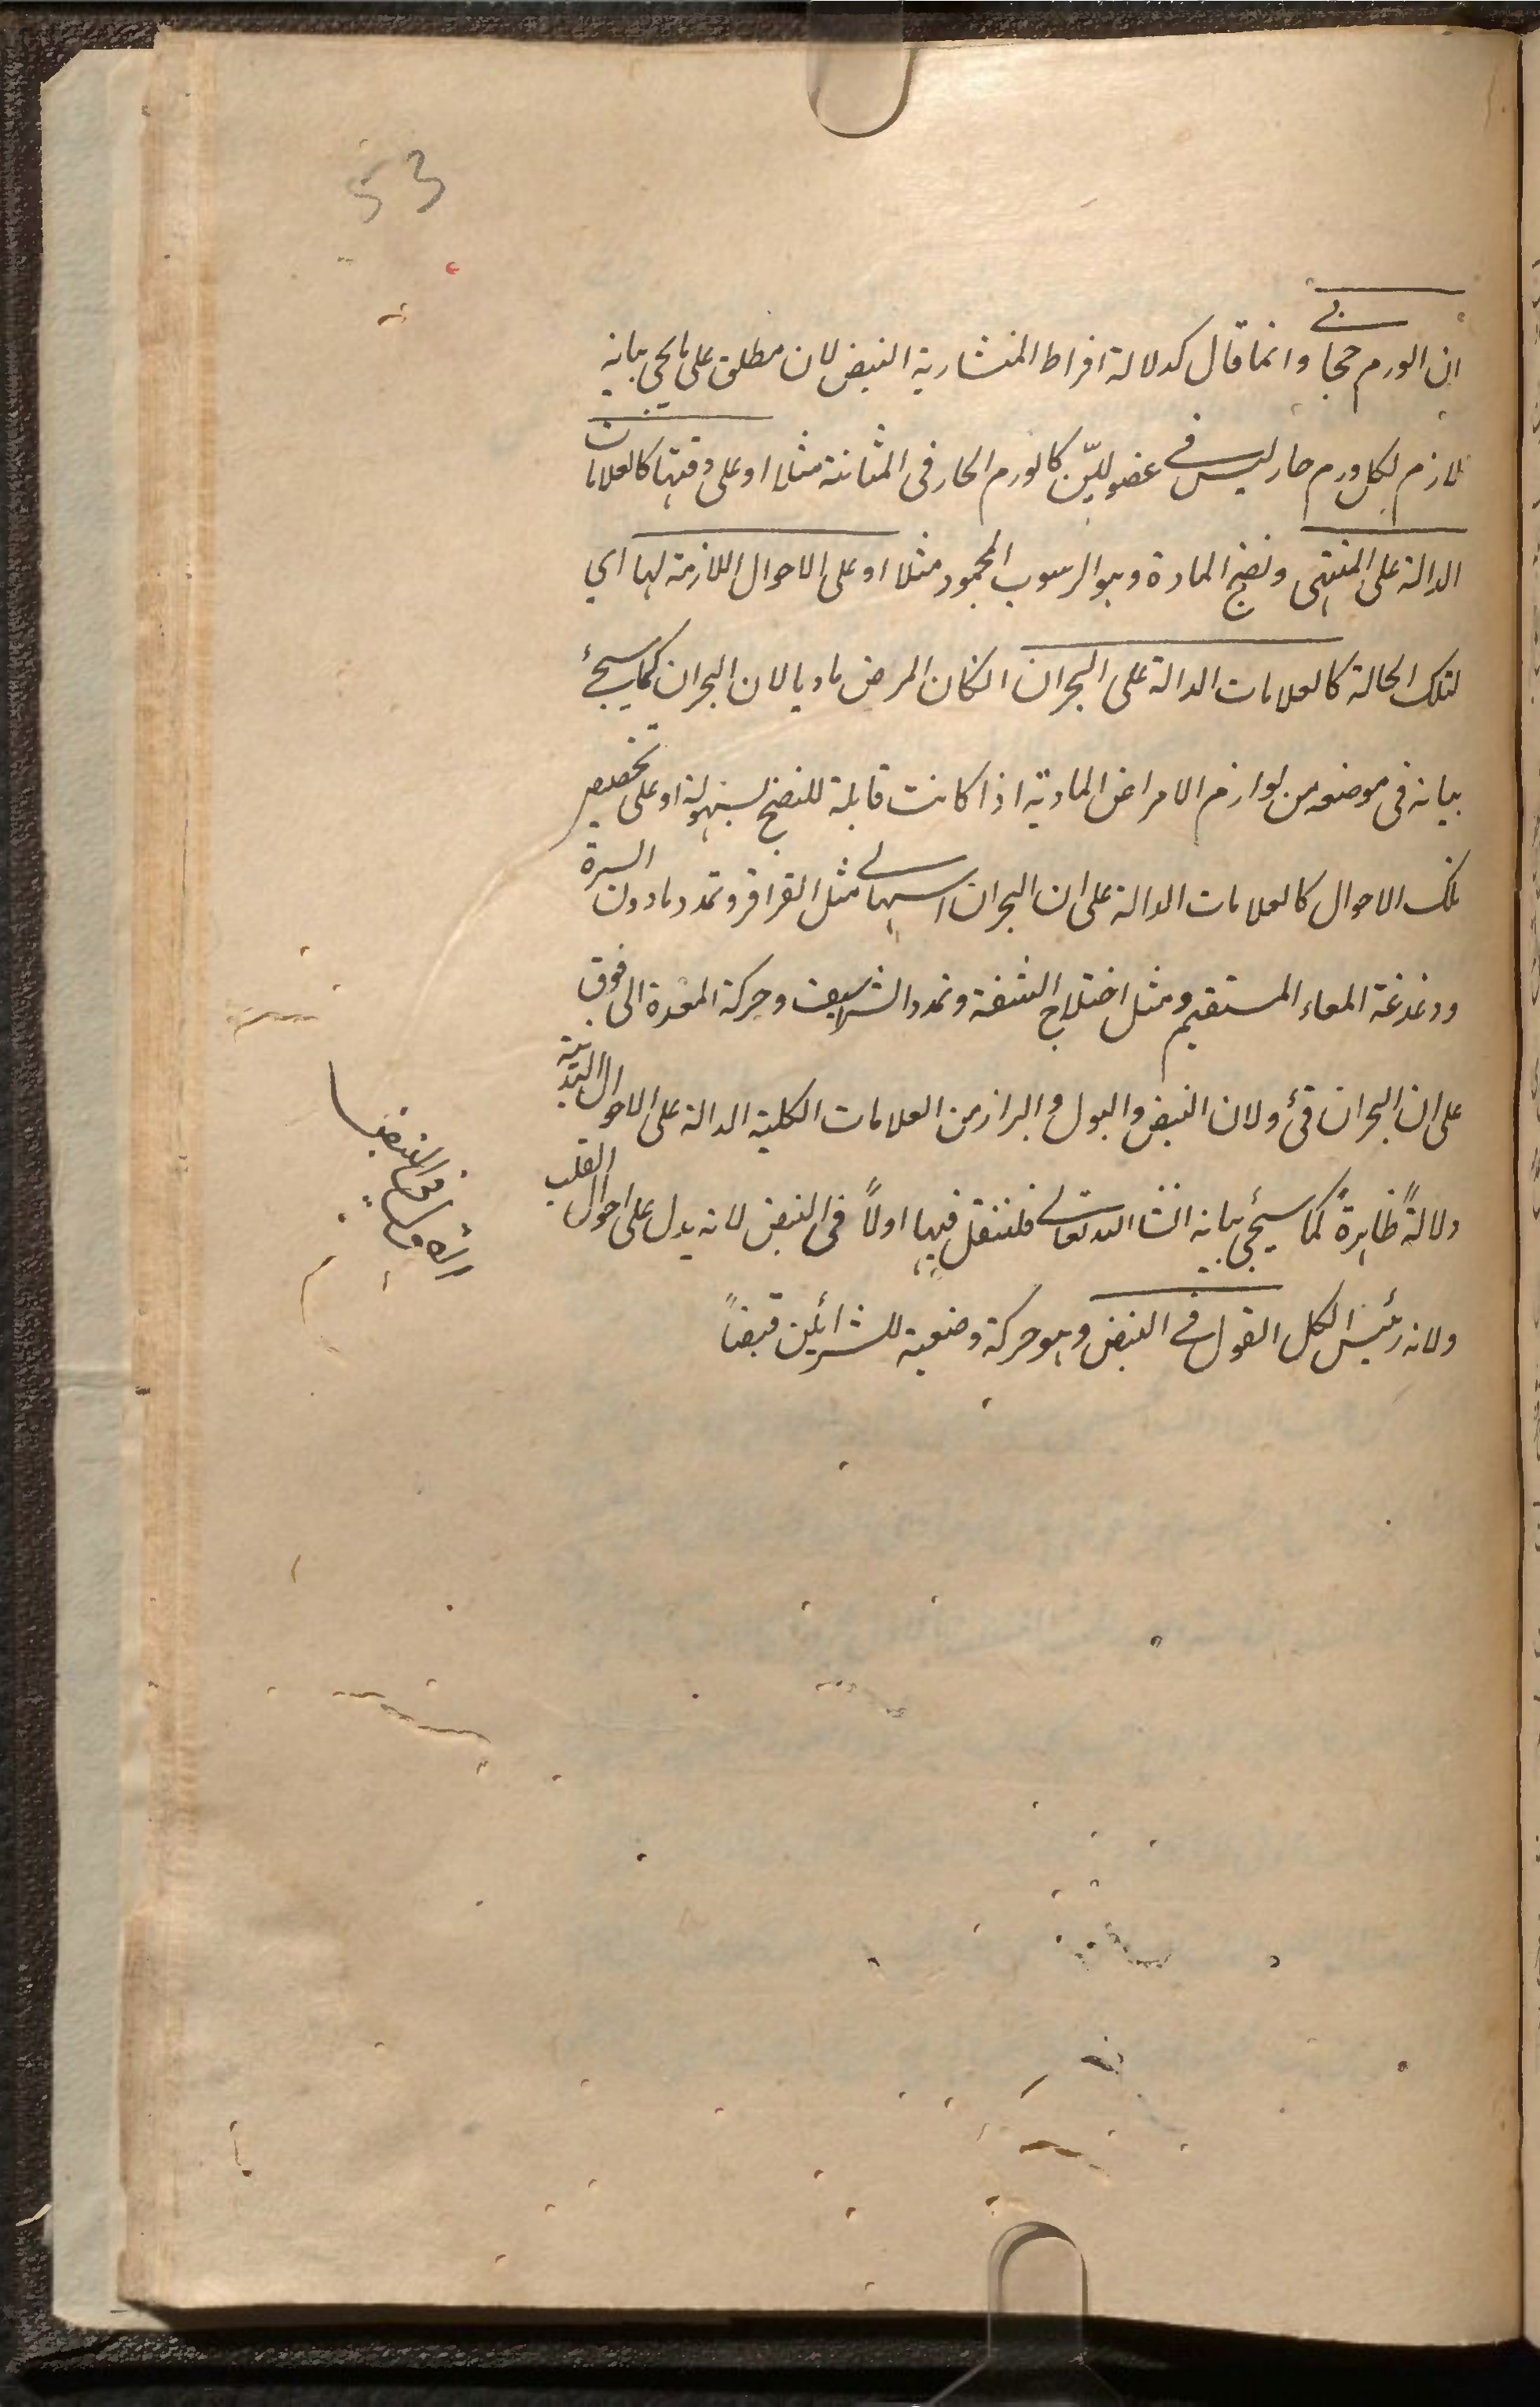 53
ان الورم حجابي وانما قال كدلالة افراط المنشارية النبض لان مطلق على ما يجي بيانه
لازم لكل ورم حار ليس في عضو ليّن كالورم الحار في المثانة مثلا او على وقتها كالعلامات
الدالة على المنتهى ونضج المادة وهو الرسوب المحمود مثلا او على الاحوال اللازمة لها اي
لتلك الحالة كالعلامات الدالة على البحران انكان المرض ماديا لان البحران كما سيجئ
بيانه في موضعه من لوازم الامراض المادية اذا كانت قابلة للنضج بسهولة او على تخصيص
تلك الاحوال كالعلامات الدالة على ان البحران اسهالي مثل القراقر وتمدد مادون السرة
ودغدغة المعاء المستقيم ومثل اختلاج الشفة وتمدد الشراسيف وحركة المعدة الى فوق
على ان البحران قئ ولان النبض والبول والبراز من العلامات الكلية الدالة على الاحوال البدنية
دلالةً ظاهرةً كما سيجئ بيانه انشا الله تعالى فلننقل فيها اولاً في النبض لانه يدل على احوال القلب
ولانه رئيس الكل القول في النبض وهو حركة وضعية للشرائين قبضاً